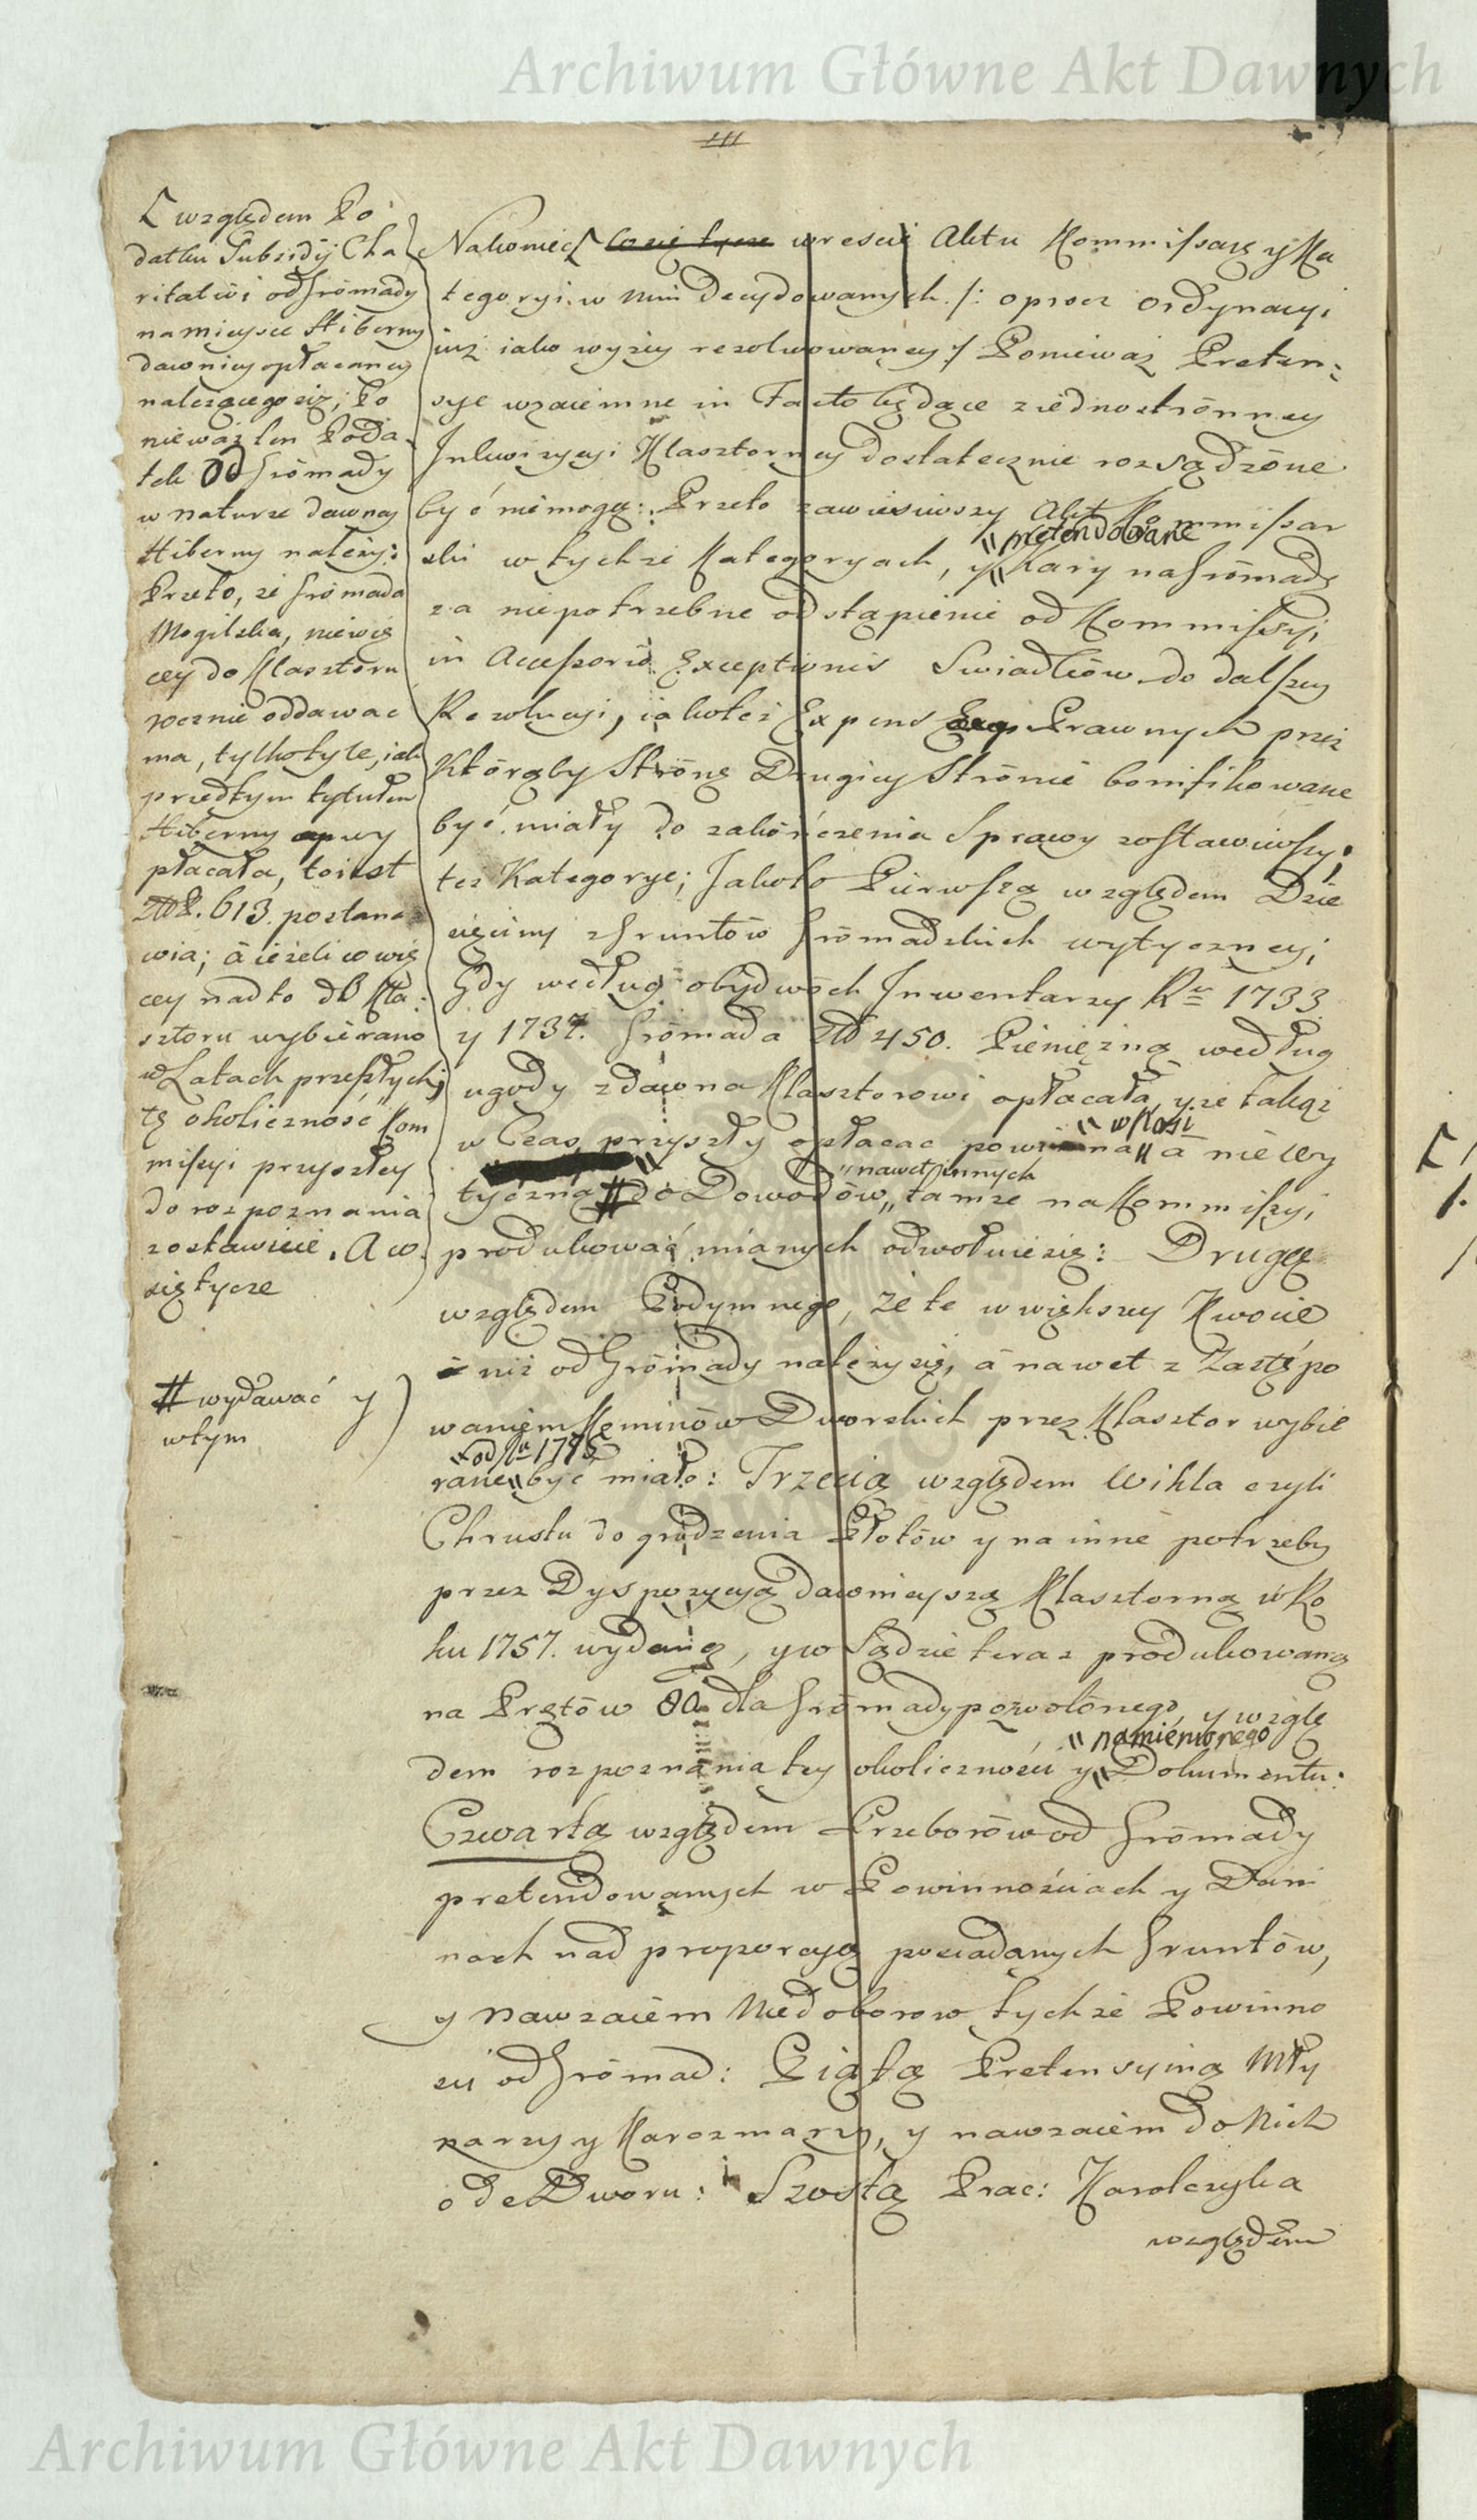 Archiwum Główne Akt Dawnych
względem Po
datku Subsidij Cha
ritativi od Gromady
na mieysce Hiberny
dawniey opłacaney
należącego się; Po
nieważ ten Poda
tek od Gromady
w naturze dawney
Hiberny należy:
Przeto, że Gromada
Mogilska, niewię
cey do Klasztoru
rocznie oddawac
ma, tylko tyle, iak
przedtym tytułem
Hiberny wy
płacała, to iest
Złł. 613. postana
wia; á ieżeli co wię
cey nadto do Kla:
sztoru wybierano
w Latach przeszłych;
tę okoliczność Kom
missyi przyszłey
do rozpoznania
zostawuie. A co
się tycze
# wydawać y
w tym
Nakoniec co się tycze w reście Aktu Kommissars: y Ka
tegoryi w nim decydowanych /: oprocz Ordynacyi
iuż iako wyżey rezolwowaney :/ Ponieważ Preten:
sye wzaiemne in Facto będące z iednostronney
Inkwizycyi Klasztorney dostatecznie rozsądzone
być niemogą: Przeto zawiesiwszy Akt Kommissar
ski w tychże Kategoryach, y "pretendowane" Kary na Gromadę
za niepotrzebne odstąpienie od Kommissyi
in Accessorio Exceptionis Swiadków do dalszey
Rezolucyi, iakoteż Expens Prawnych przez
Którąby Stronę Drugiey Stronie bonifikowane
być miały do zakończenia Sprawy zostawiwszy;
też Kategorye; Jakoto Pierwszą względem Dzie
sięciny z Gruntów Gromadzkich wytyczney;
Gdy według obydwóch Inwentarzy Ru 1733
y 1737. Gromada Złł 450. Pieniężną według
ugody zdawna Klasztorowi opłacała, y że takąż
w Czas przyszły opłacac powinna "w Kosi" á nie wy
tyczną # do Dowodów, "nawet innych" tamże na Kommissyi
produkować mianych odwołuie się: Drugą
względem Podymnego, że te w większey Kwocie
niż od Gromady należy się, á nawet z Zastępo
waniem Kominów Dworskich przez Klasztor wybie
rane "od Ru 1775" być miało: Trzecią względem Wikla czyli
Chrustu do grodzenia Płotów y na inne potrzeby
przez Dyspozycyą dawnieyszą Klasztorną w Ro
ku 1757. wydaną, y w Sądzie teraz produkowaną
na Prętów 80 dla Gromady pozwolonego, y wzglę
dem rozpoznania tey okoliczności y "namienionego" Dokumentu:
Czwartą względem Przeborów od Gromady
pretendowanych w Powinnościach y Dani
nach nad proporcyą posiadanych Gruntów,
y nawzaiem Niedoborow tychże Powinno
sci od Gromad: Piątą Pretensyiną Mły
narzy y Karczmarzy, y nawzaiem do Nich
ode Dworu: Szostą Prac: Karolczyka
względem
Archiwum Główne Akt Dawnych